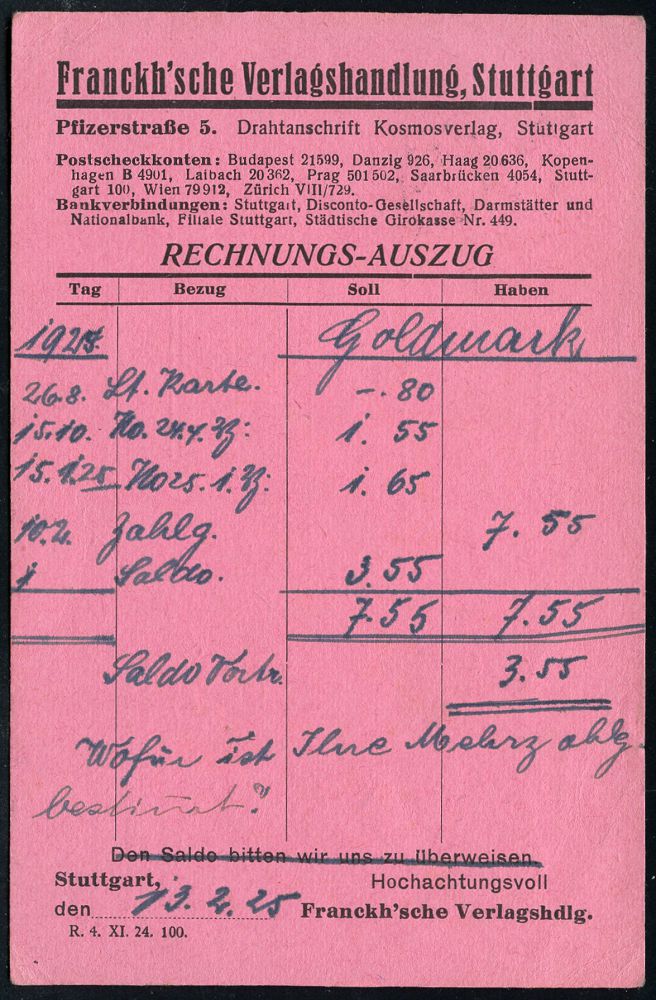 Franckh'sche Verlagshandlung, Stuttgart
Pfizerstraße 5. Drahtanschrift Kosmosverlag, Stuttgart
Postscheckkonten: Budapest 21599, Danzig 926, Haag 20636, Kopen-
hagen B 4901, Laibach 20362, Prag 501502, Saarbrücken 4054, Stutt-
gart 100, Wien 79912, Zürich VIII/729.
Bankverbindungen: Stuttgart, Disconto-Gesellschaft, Darmstätter und
Nationalbank, Filiale Stuttgart, Städtische Girokasse Nr. 449.
RECHNUNGS-AUSZUG
Tag Bezug Soll Haben
1924. Goldmark
26.8. Lt. Karte. -. 80
15.10. 1. 55
15.1.25 1. 65
10.2. Zahlg. 7. 55
Saldo. 3.55
7.55 7.55
Saldo Vortr. 3.55
Wofür ist Ihre Mehrzahlg.
bestimmt?
Den Saldo bitten wir uns zu überweisen.
Stuttgart, Hochachtungsvoll
den 13. 2. 25 Franckh'sche Verlagshdlg.
R. 4. XI. 24. 100.